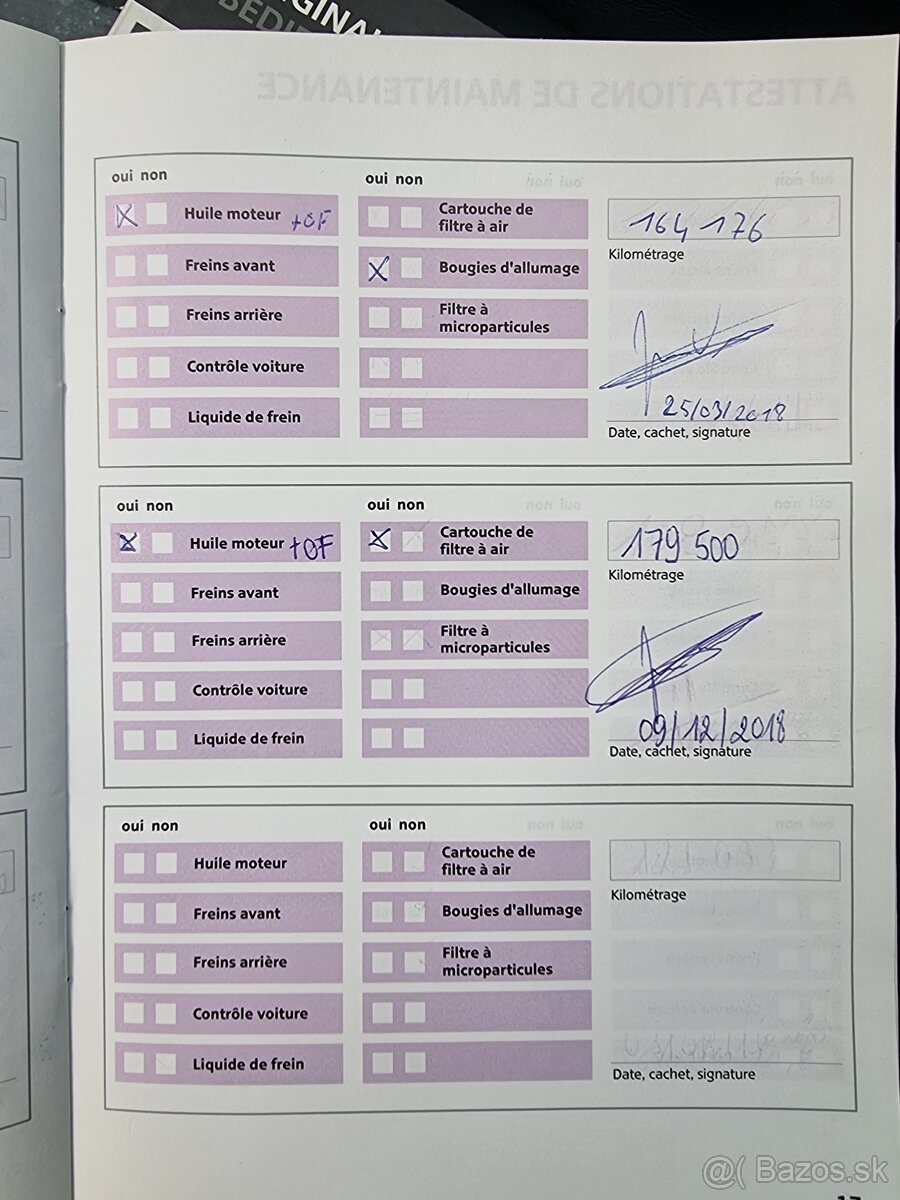 GINAL
BEDIE
ATTESTATIONS DE MAINTENANCE
oui non
Huile moteur +OF
Freins avant
Freins arrière
Contrôle voiture
Liquide de frein
oui non
Cartouche de
filtre à air
Bougies d'allumage
Filtre à
microparticules
164 176
Kilométrage
25/03/2018
Date, cachet, signature
oui non
Huile moteur +OF
Freins avant
Freins arrière
Contrôle voiture
Liquide de frein
oui non
Cartouche de
filtre à air
Bougies d'allumage
Filtre à
microparticules
179 500
Kilométrage
09/12/2018
Date, cachet, signature
oui non
Huile moteur
Freins avant
Freins arrière
Contrôle voiture
Liquide de frein
oui non
Cartouche de
filtre à air
Bougies d'allumage
Filtre à
microparticules
Kilométrage
Date, cachet, signature
@( Bazos.sk